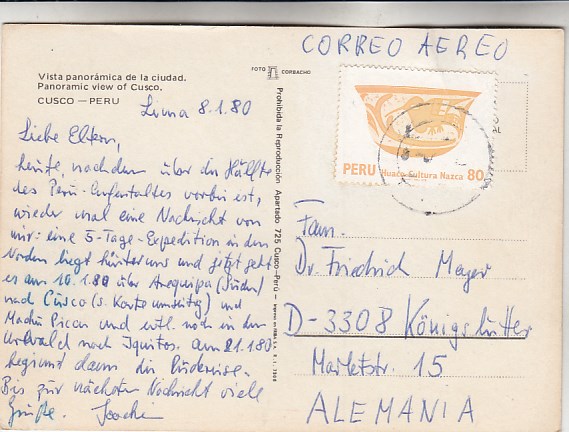 CORREO AEREO
Vista panorámica de la ciudad.
Panoramic view of Cusco.
CUSCO — PERU
FOTO CORBACHO
Prohibida la Reproducción Apartado 725 Cusco-Perú
Lima 8.1.80
Liebe Eltern,
heute, nachdem über die Hälfte
des Peru-Aufenthaltes vorbei ist,
wieder mal eine Nachricht von
mir: eine 5-Tage-Expedition in den
Norden liegt hinter uns und jetzt geht
es am 10.1.80 über Arequipa (Süden)
nach Cusco (s. Karte umseitig) und
Machu Picchu und evtl. noch in den
Urwald nach Iquitos. Am 21.1.80
beginnt dann die Rückreise.
Bis zur nächsten Nachricht viele
Grüße. Joachim
PERU Huaco Cultura Nazca 80
Fam.
Dr. Friedrich Meyer
D-3308 Königslutter
Marktstr. 15
ALEMANIA